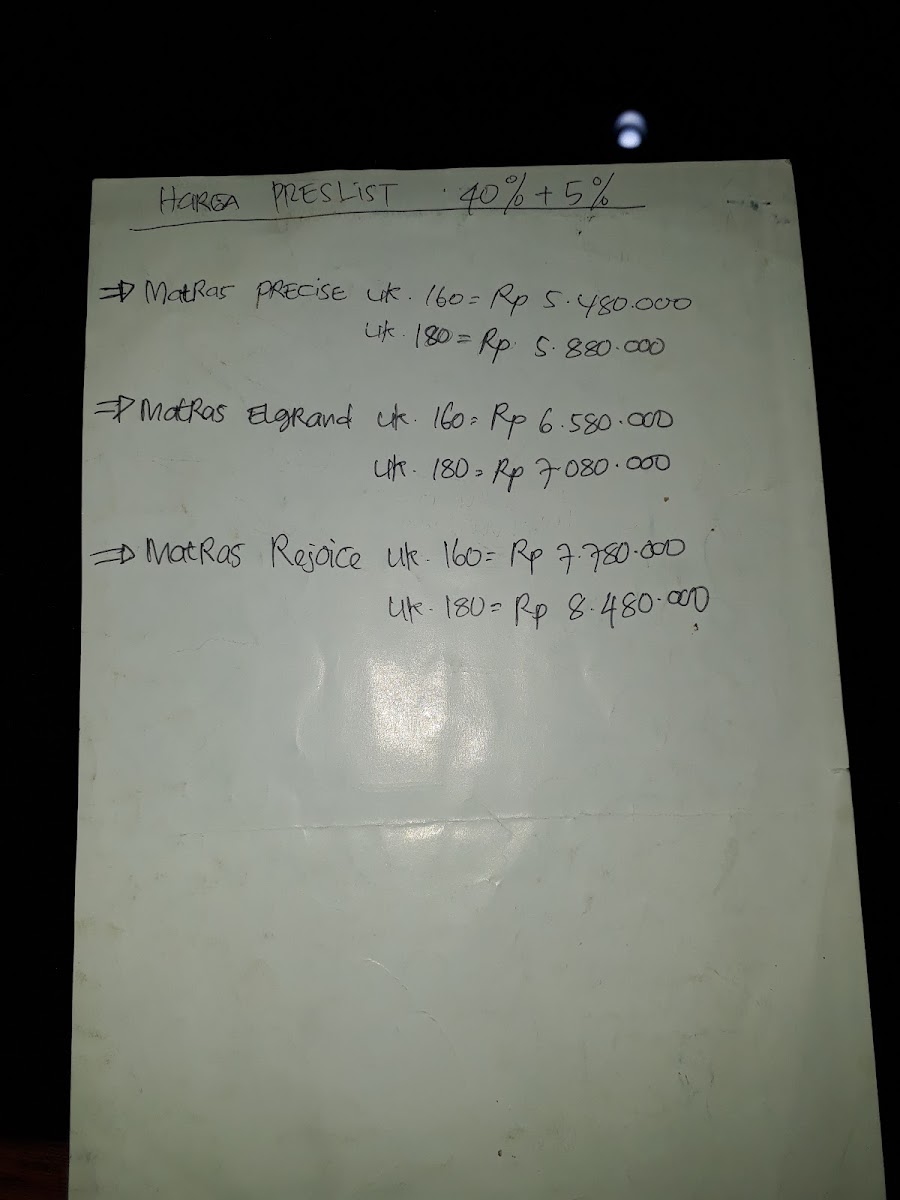 HARGA PRESLIST 40% + 5%
⇒ MatRas PRECISE uk. 160 = Rp 5.480.000
uk. 180 = Rp. 5.880.000
⇒ MatRas ElgRand uk. 160 = Rp 6.580.000
uk. 180 = Rp 7.080.000
⇒ MatRas Rejoice uk. 160 = Rp 7.780.000
uk. 180 = Rp 8.480.000